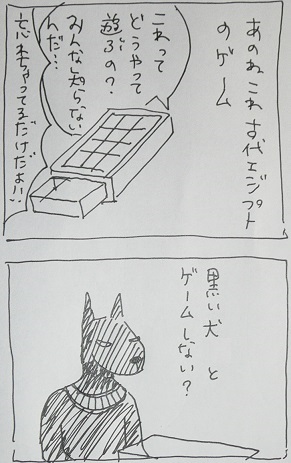 あのねこれ古代エジプト
のゲーム
これって
どうやって
遊ぶの?
みんな知らない
んだ…
忘れちゃってるだけだよ!!
黒い犬と
ゲームしない?